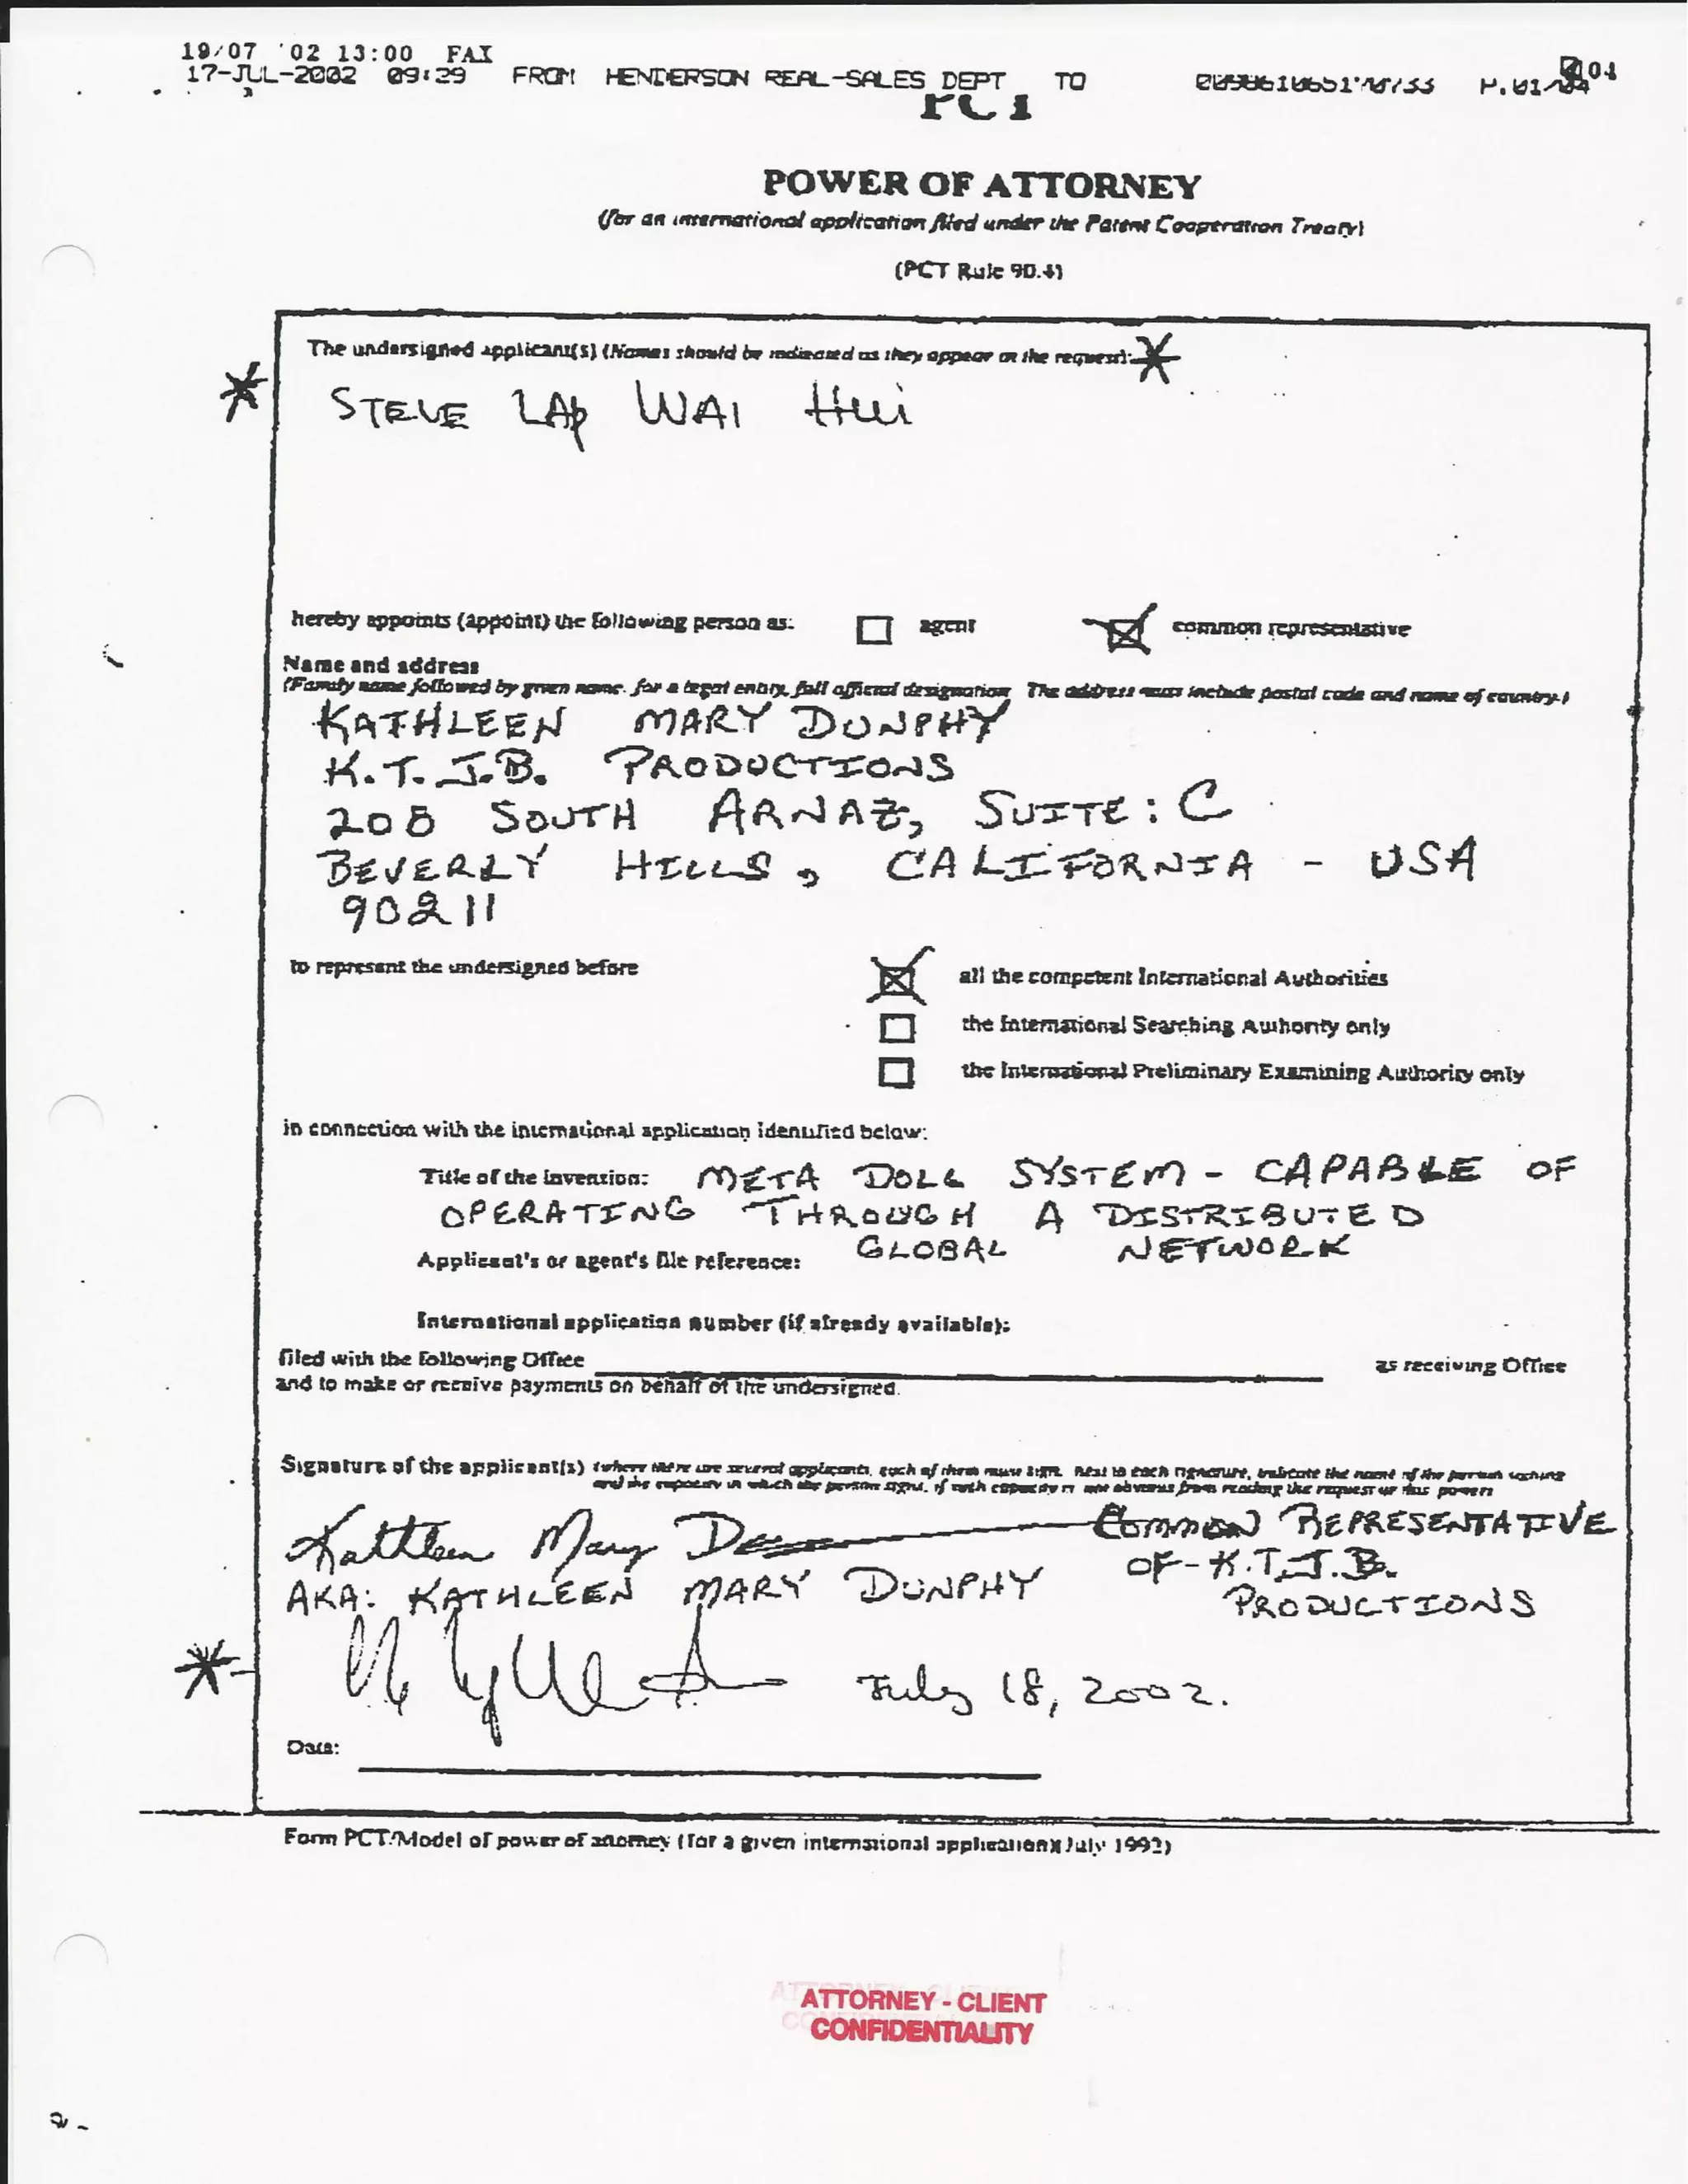 19/07 '02 13:00 FAX
17-JUL-2002 09:29 FROM HENDERSON REAL-SALES DEPT TO
PCT
POWER OF ATTORNEY
(for an international application filed under the Patent Cooperation Treaty)
(PCT Rule 90.4)
The undersigned applicant(s) (Names should be indicated as they appear in the request):
STEVE LAP WAI HUI
hereby appoints (appoint) the following person as: agent common representative
Name and address
(Family name followed by given name. for a legal entity, full official designation The address must include postal code and name of country.)
KATHLEEN MARY DUNPHY
K.T.J.B. PRODUCTIONS
208 SOUTH ARNAZ, SUITE: C
BEVERLY HILLS, CALIFORNIA - USA
90211
to represent the undersigned before all the competent International Authorities
the International Searching Authority only
the International Preliminary Examining Authority only
in connection with the international application identified below:
Title of the invention: META DOLL SYSTEM - CAPABLE OF
OPERATING THROUGH A DISTRIBUTED
GLOBAL NETWORK
Applicant's or agent's file reference:
International application number (if already available):
filed with the following Office as receiving Office
and to make or receive payments on behalf of the undersigned.
Signature of the applicant(s) (where there are several applicants, each of them must sign. next to each signature, indicate the name of the person signing
and the capacity in which the person signs, if such capacity is not obvious from reading the request or this power)
Kathleen Mary COMMON REPRESENTATIVE
OF - K.T.J.B.
AKA: KATHLEEN MARY DUNPHY PRODUCTIONS
July 18, 2002.
Date:
Form PCT/Model of power of attorney (for a given international application) (July 1992)
ATTORNEY - CLIENT
CONFIDENTIALITY